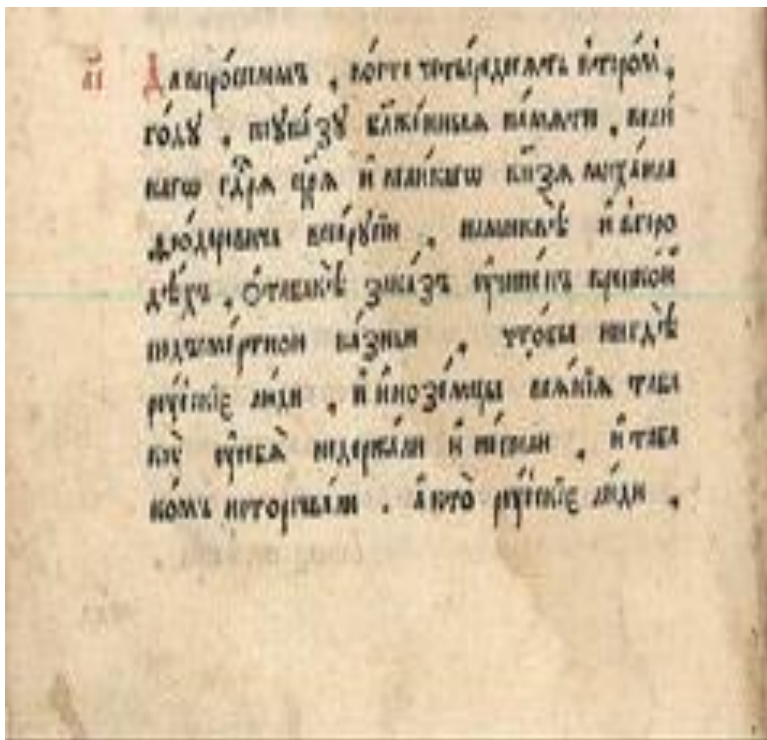 а҃і Да в про́шломъ , во́ сто четы́редесятъ второ́мъ ,
го́ду , по ука́зу бл҃же́нныя па́мяти , вели́
кагѡ гд҃ря цр҃я и҆ вели́кагѡ кн҃зя михаи́ла
ѳео́доровича всеѧ̀ русі́и , на москвѣ̀ и҆ в горо
дѣ́хъ , ѡ҆ табакѣ̀ зака́зъ оу҆чине́нъ крѣпкой
под сме́ртною ка́знью , что́бы нигдѣ̀
ру́скіе лю́ди , и҆ и҆нозе́мцы вся́кія таба
кꙋ̀ оу҆ себя̀ недержа́ли и҆ непи́ли , и҆ таба
ко́мъ неторгова́ли . а҆ кто̀ ру́скіе лю́ди ,